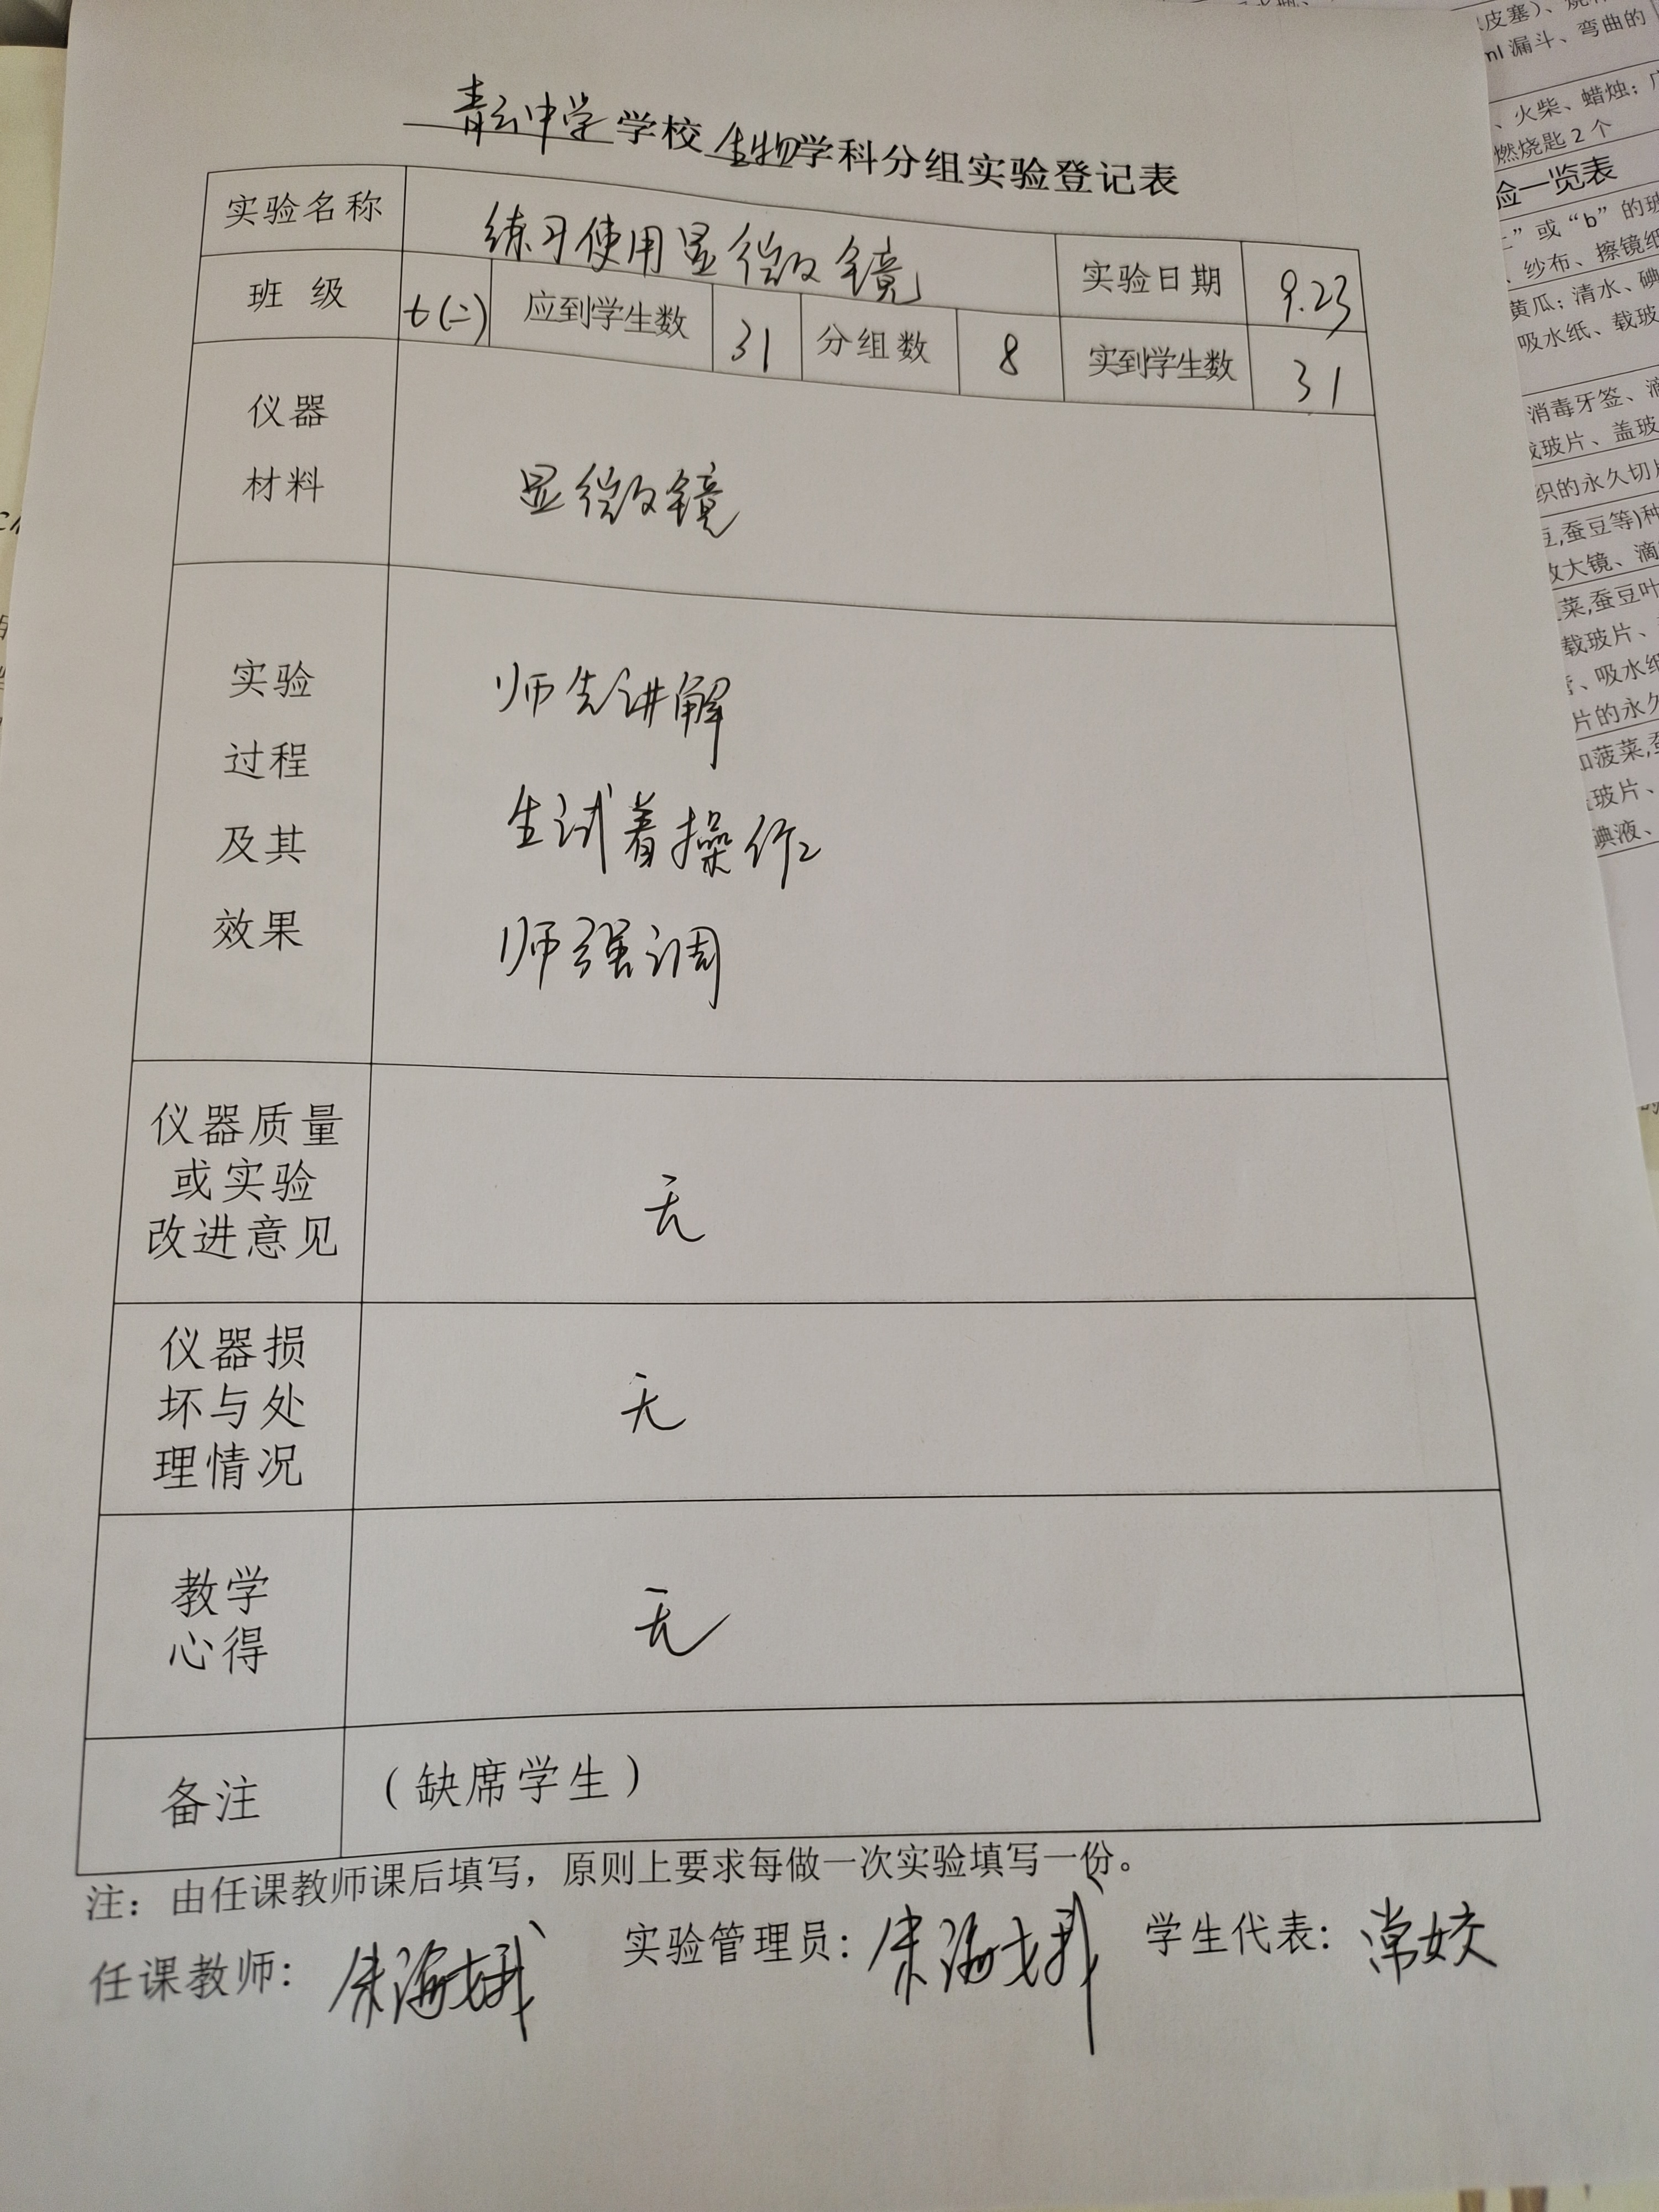 青云中学学校生物学科分组实验登记表
实验名称 练习使用显微镜 实验日期 9.23
班 级 七(二) 应到学生数 31 分组数 8 实到学生数 31
仪器
材料
显微镜
实验
过程
及其
效果
师先讲解
生试着操作
师强调
仪器质量
或实验
改进意见
无
仪器损
坏与处
理情况
无
教学
心得
无
备注 (缺席学生)
注：由任课教师课后填写，原则上要求每做一次实验填写一份。
任课教师： 朱海娥 实验管理员： 朱海娥 学生代表： 常姣
皮塞)、
ml 漏斗、弯曲的
、火柴、蜡烛；
燃烧匙 2 个
验一览表
”或“b”的玻
、纱布、擦镜纸
黄瓜；清水、碘
吸水纸、载玻
消毒牙签、滴
载玻片、盖玻
织的永久切片
豆,蚕豆等)种
放大镜、滴
菜,蚕豆叶
载玻片、
、吸水纸
片的永久
如菠菜,蚕
玻片、
碘液、